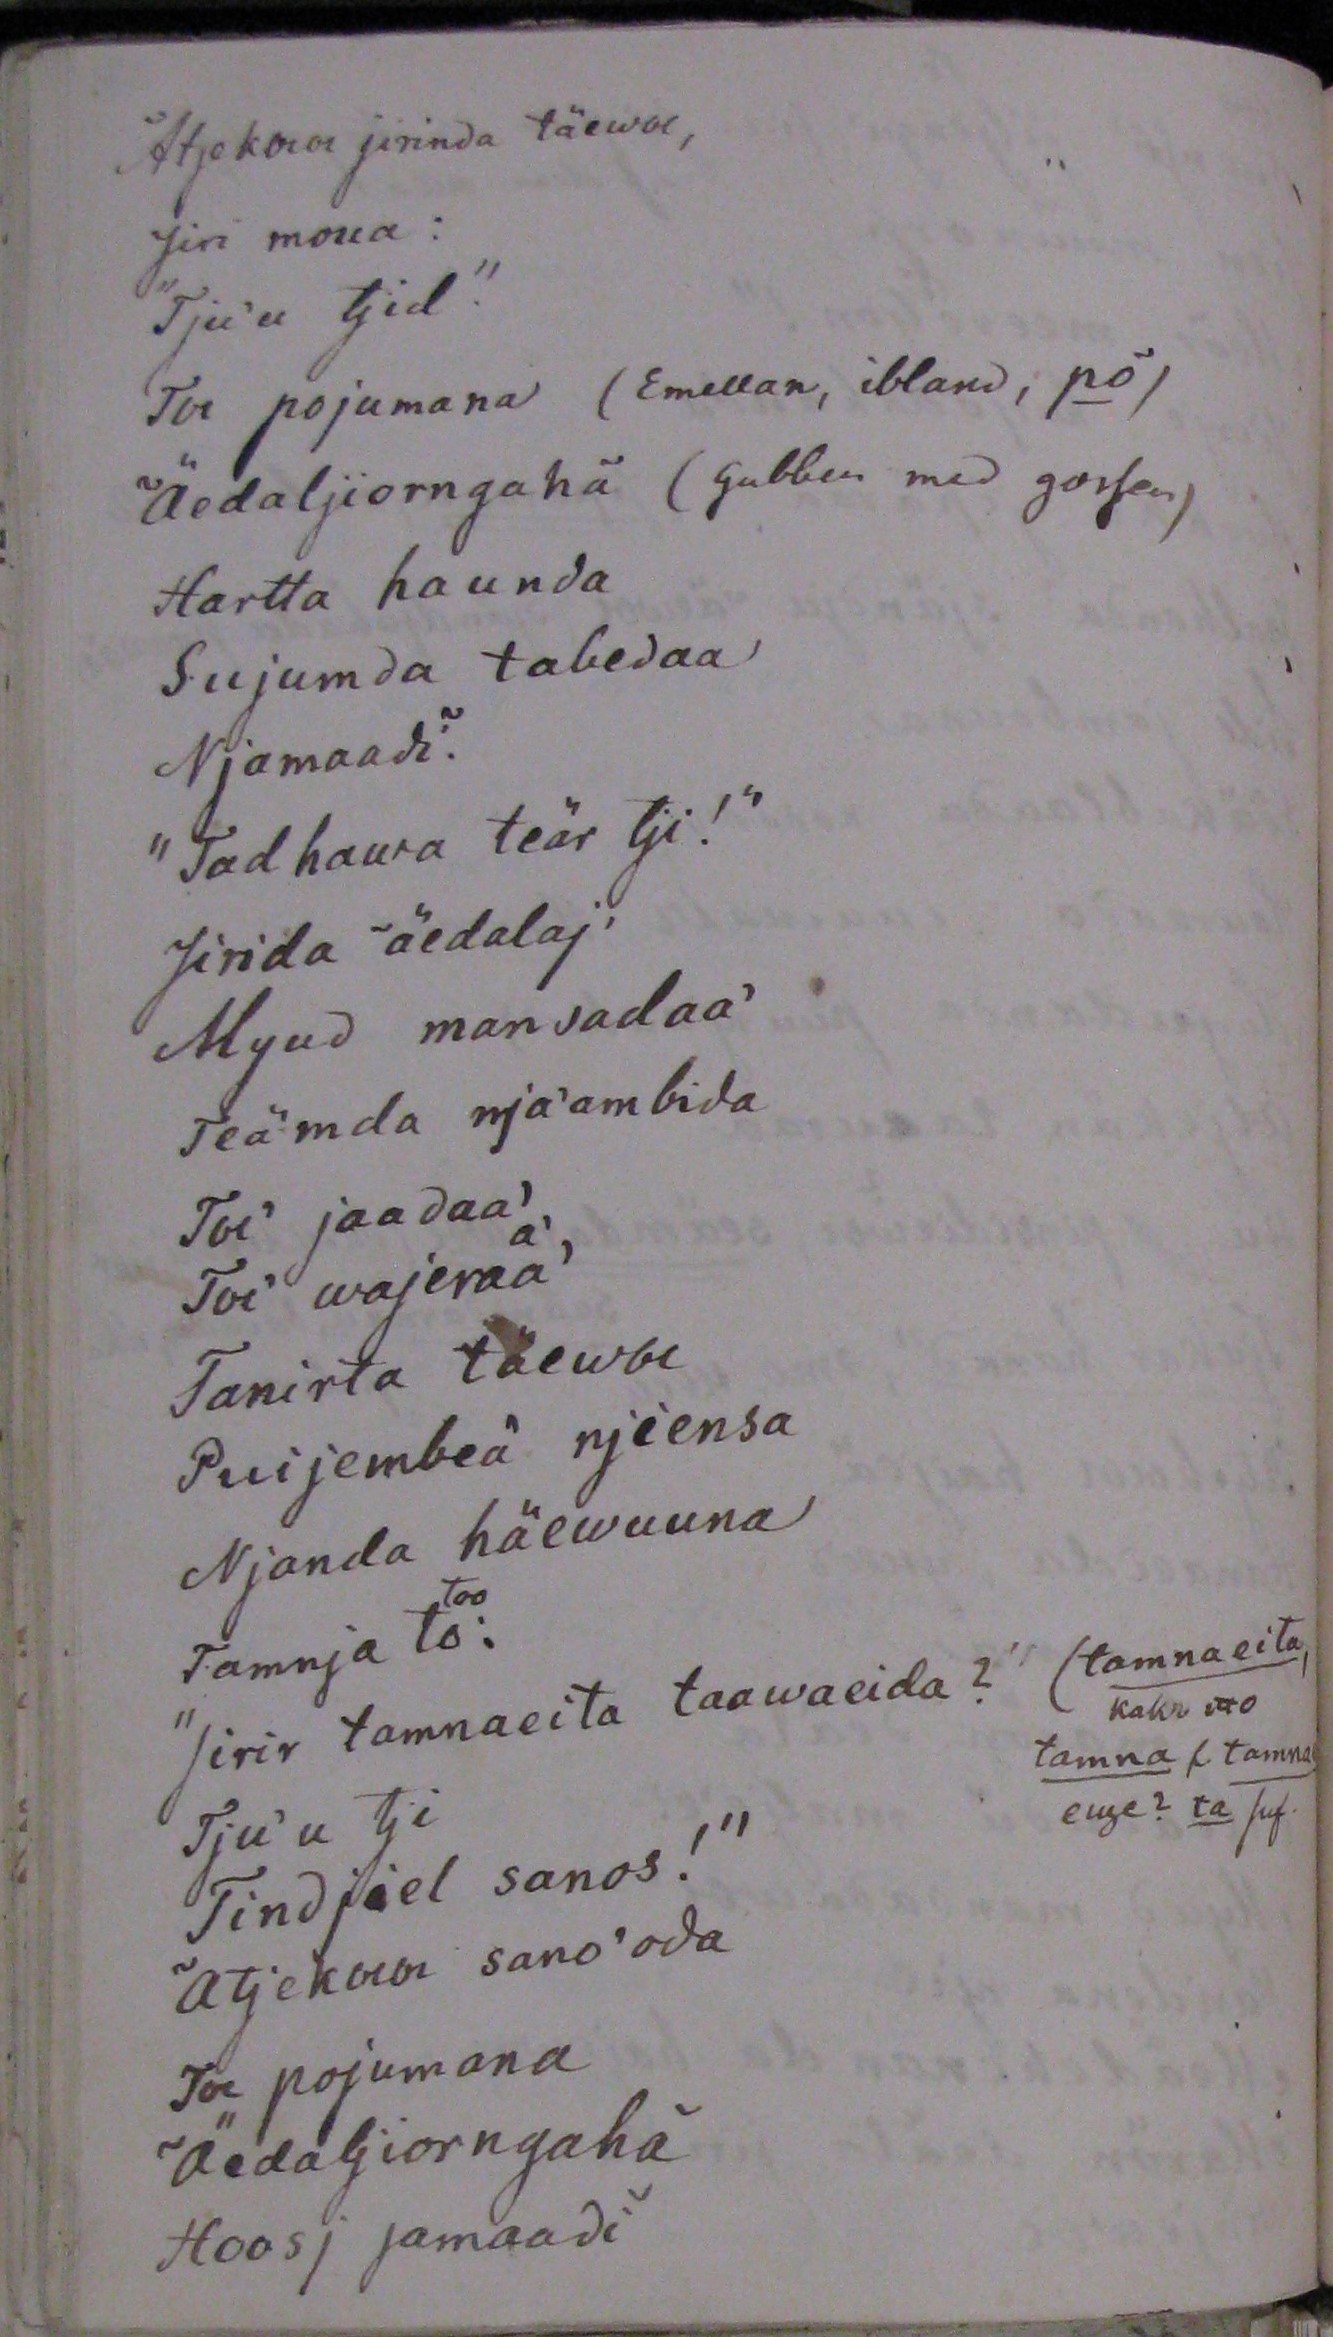 ˜Atjekoua jirinda täewoe,
Jiri moua:
"Tju'u tjid".
Toe pojumana (Emellan, ibland, põ)
˜Äedaljiorngahã (Gubben med gossen)
Hartta haunda
Sujumda tabedaa
Njamaadĩ.
"Tadhawra teär tji!"
Jirida ˜äedalaj'
Myud mansadaa'
Teämda nja'ambida
Toe' jaadaa',
Toe' wajeraa' a',
Tanirta täewoe
Puijembeä njiensa
Njanda häewuuna
Tamnja to: too
"Jirir tamnaeita taawaeida?" (tamnaeita,
kakr
tamna f. tamna
euge? ta suf.
Tju'u tji
Tindjiel sanos!"
˜Atjekoua sano'oda
Toe pojumana
˜Äedaljiorngahã
Hoosj jamaadĩ